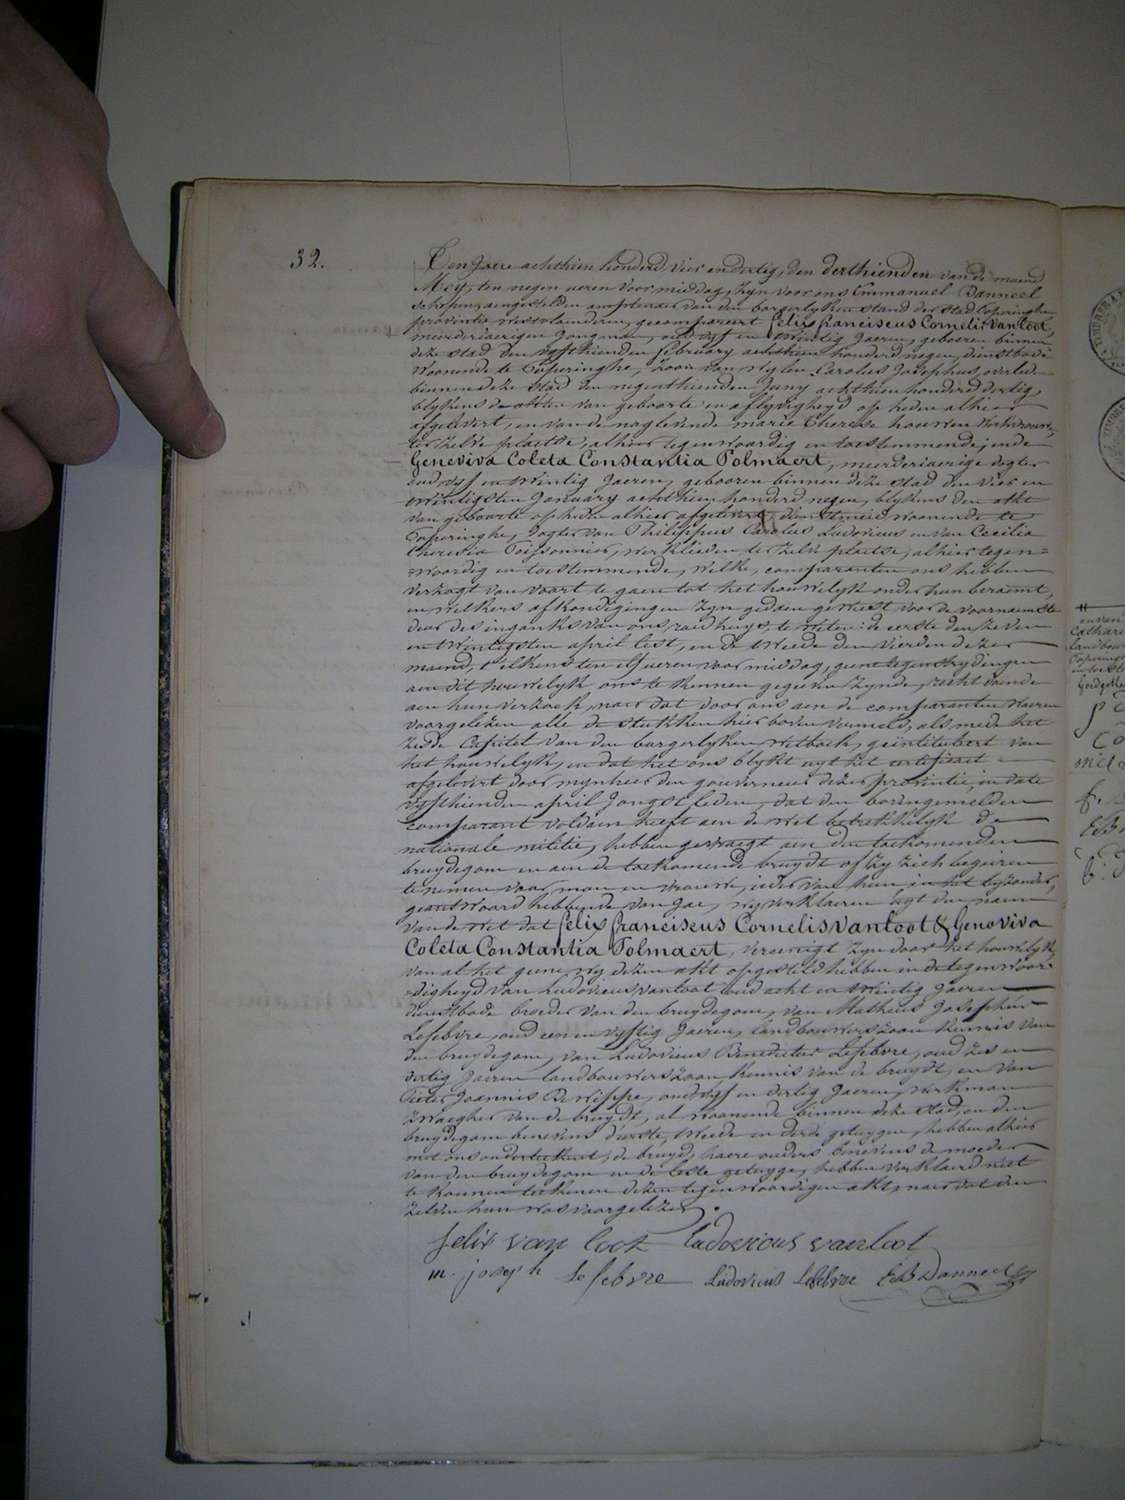 32.
Ten Jaere achthien honderd vier en dertig, den derthienden van de maend
Mey, ten negen ueren voormiddag, zyn voor ons Emmanuel Danneel
schepen, aengestelden amptenaer van den borgerlyken stand der stad Poperinghe
provintie westvlaenderen, gecompareert felix franciscus Cornelis vanloot,
meerderjaerigen Jongman, oud vyf en twintig Jaeren, geboren binnen
deze stad den vyfthienden february achthien honderd negen, dienstbode
woonende te Poperinghe, zoon van wylen Carolus Josephus, overleden
binnen deze stad den negenthienden Juny achthien honderd dertig,
blykens de akten van geboorte en aflyvigheyd op heden alhier
afgelevert, en van de naglevende marie Therese houwen
ter zelve plaetse, alhier tegenwoordig en toestemmende; ende
Geneviva Coleta Constantia Tolmaert, meerderjaerige dogter
oud vyf en twintig Jaeren, geboren binnen deze stad den vier en
twintigsten January achthien honderd negen, blykens den akt
van geboorte op heden alhier afgelevert, dienstmeid woonende te
Poperinghe, dogter van Philippus Carolus Ludovicus en van Cecilia
Theresia Poissonnier, werklieden ter zelve plaetse, alhier tegen=
woordig en toestemmende, welke comparanten ons hebben
verzogt van voort te gaen tot het houwelyk onder hun beraemt,
en welkers afkondigingen zyn gedaen geweest voor de voornaemste
deur des ingangs van ons raedhuys, te weten: de eerste den zeven
en twintigsten april lest, en de tweede den vierden dezer
maend, t'elkens ten elf ueren voormiddag, geene tegenstrydigen
aen dit huwelyk ons te kennen gegeven zynde, recht doende
aen hun verzoek, naer dat door ons aen de comparanten waeren
voorgelezen alle de stukken hier boven vermeld, als mede het
zesde Capitel van den borgerlyken wetboek, geintituleert van
het houwelyk, en dat het ons blykt uyt het certificaet
afgelevert door mynheer den gouverneur dezer provintie, in date
vyfthienden april Jongstleden, dat den bovengemelden
comparant voldaen heeft aen de wet betrekkelyk de
nationale militie, hebben gevraegt aen den toekomenden
bruydegom en aen de toekomende bruydt of zy zich begeiren
te nemen voor man en vrouwe, ieder van hun in het byzonder,
geantwoord hebbende van Jae, wy verklaeren uyt den naem
van de wet dat felix franciscus Cornelis vanloot & Genoviva
Coleta Constantia Tolmaert, vereenigt zyn door het houwelyk,
van al het geene wy dezen akt opgesteld hebben in de tegenwoor=
digheyd van Ludovicus vanloot oud acht en twintig Jaeren
dienstbode broeder van den bruydegom, van Matheus Josephus
Lefebvre, oud een en vyftig Jaeren, landbouwers zoon kennis van
den bruydegom, van Ludovicus Benedictus Lefebvre, oud zes en
dertig Jaeren landbouwers zoon kennis van de bruydt, en van
Pieter Joannis Dewippe, oud vyf en dertig Jaeren, werkman
zwaegher van de bruydt, al woonende binnen deze stad, en den
bruydegom benevens d'eerste, tweede en derde getuygen, hebben alhier
met ons onderteekent, de bruyd, haere ouders benevens de moeder
van den bruydegom en de leste getuyge, hebben verklaerd niet
te konnen teekenen dezen tegenwoordigen akt, naer dat den
zelven hun was voorgelezen.
felix van loot Ludovicus vanloot
m. joseph Lefebvre Ludovicus Lefebvre E Danneel
en van
Cathar
landbou
Poperingh